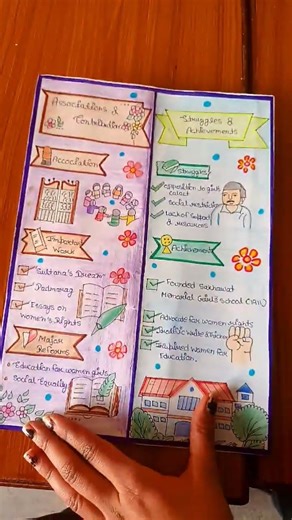 Associations &
Contributions
Association
Important
Work
"Sultana's Dream"
Padmarag
Essays on
women's Rights
Major
Reforms
Education for women girls
Social Equality
Struggles &
Achievements
Struggles
opposition to girls
Social
Lack of support
& resources
Achievement
Founded Sakhawat
Memorial Girls School (1911)
Advocate for women rights
Write &
Inspired women for
Education.